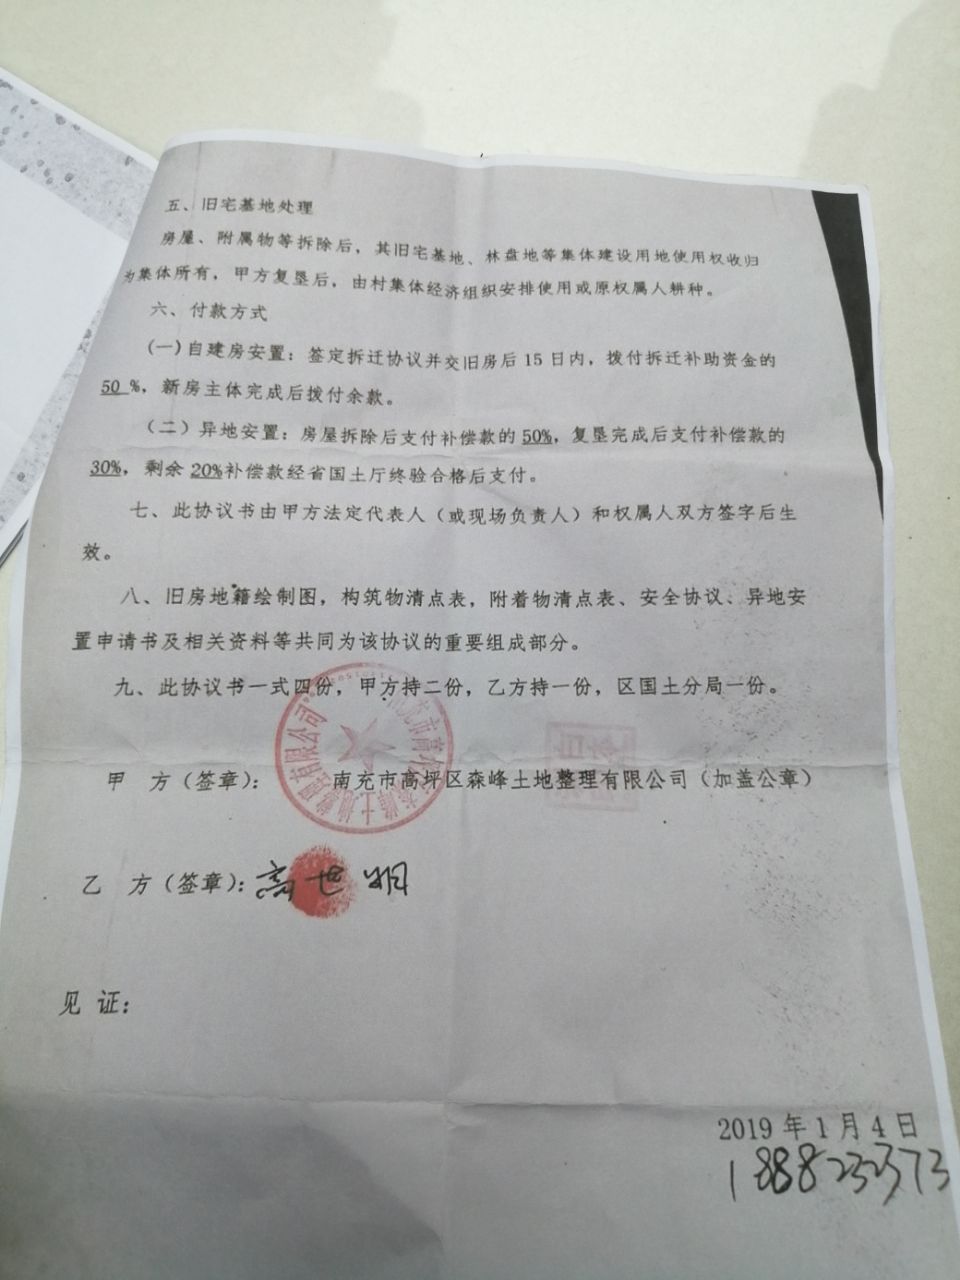 五、旧宅基地处理
房屋、附属物等拆除后，其旧宅基地、林盘地等集体建设用地使用权收归
为集体所有，甲方复垦后，由村集体经济组织安排使用或原权属人耕种。
六、付款方式
(一)自建房安置：签定拆迁协议并交旧房后15日内，拨付拆迁补助资金的
50 %，新房主体完成后拨付余款。
（二）异地安置：房屋拆除后支付补偿款的50%，复垦完成后支付补偿款的
30%，剩余20%补偿款经省国土厅终验合格后支付。
七、此协议书由甲方法定代表人（或现场负责人）和权属人双方签字后生
效。
八、旧房地籍绘制图，构筑物清点表，附着物清点表、安全协议、异地安
置申请书及相关资料等共同为该协议的重要组成部分。
九、此协议书一式四份，甲方持二份，乙方持一份，区国土分局一份。
甲 方（签章）： 南充市高坪区森峰土地整理有限公司（加盖公章）
乙 方（签章）：高世明
见 证：
2019年1月4日